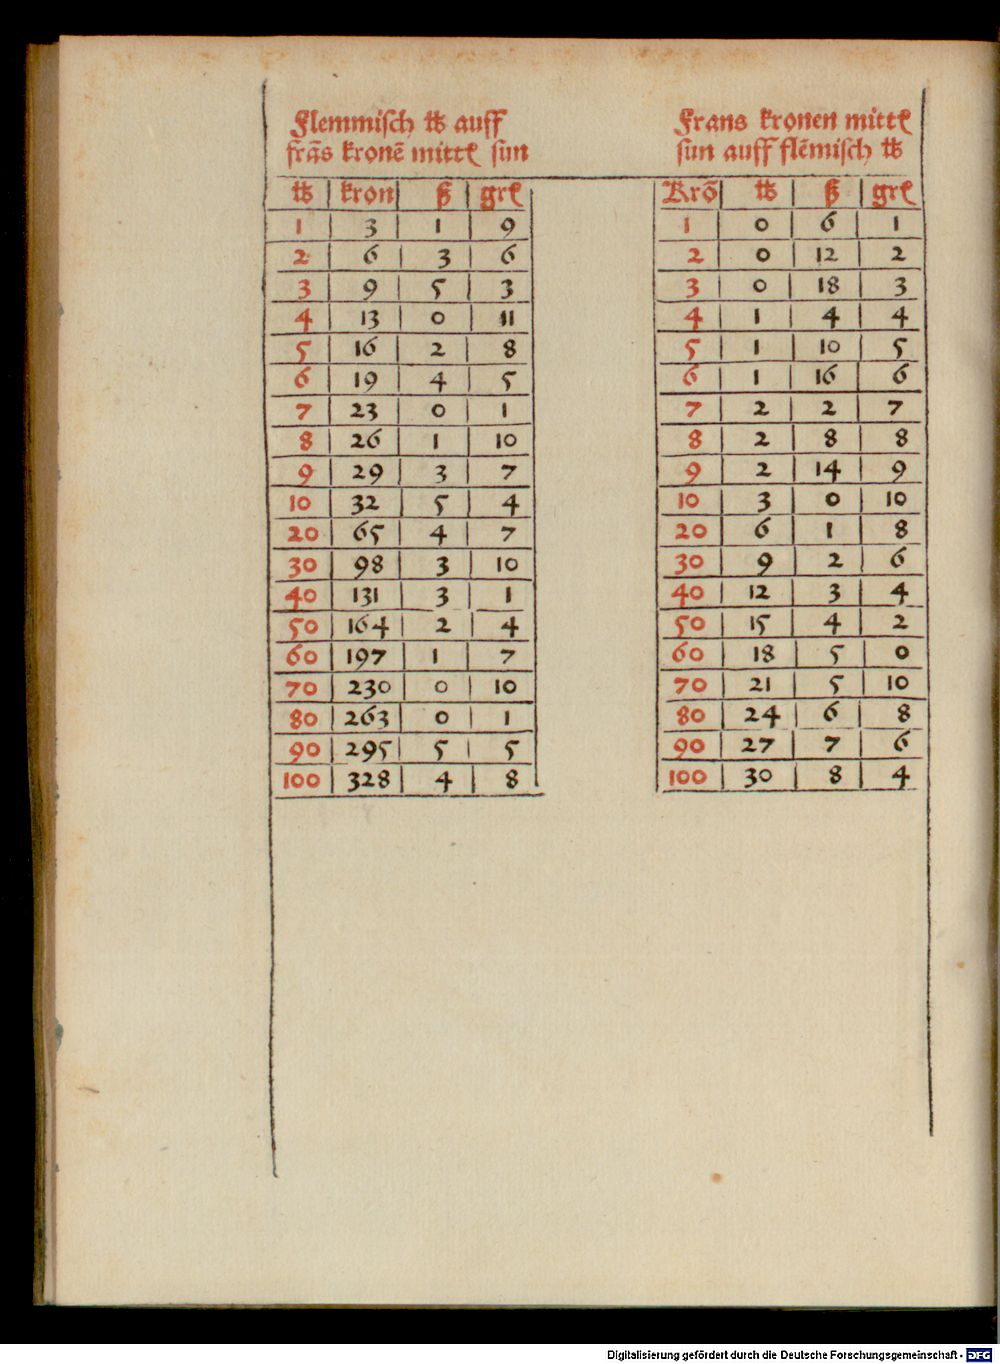 Flemmisch ℔ auff
frãs kronẽ mittꝉ sun
℔ kron ß grꝉ
1 3 1 9
2 6 3 6
3 9 5 3
4 13 0 11
5 16 2 8
6 19 4 5
7 23 0 1
8 26 1 10
9 29 3 7
10 32 5 4
20 65 4 7
30 98 3 10
40 131 3 1
50 164 2 4
60 197 1 7
70 230 0 10
80 263 0 1
90 295 5 5
100 328 4 8
Frans kronen mittꝉ
sun auff flẽmisch ℔
Krõ ℔ ß grꝉ
1 0 6 1
2 0 12 2
3 0 18 3
4 1 4 4
5 1 10 5
6 1 16 6
7 2 2 7
8 2 8 8
9 2 14 9
10 3 0 10
20 6 1 8
30 9 2 6
40 12 3 4
50 15 4 2
60 18 5 0
70 21 5 10
80 24 6 8
90 27 7 6
100 30 8 4
Digitalisierung gefördert durch die Deutsche Forschungsgemeinschaft - DFG